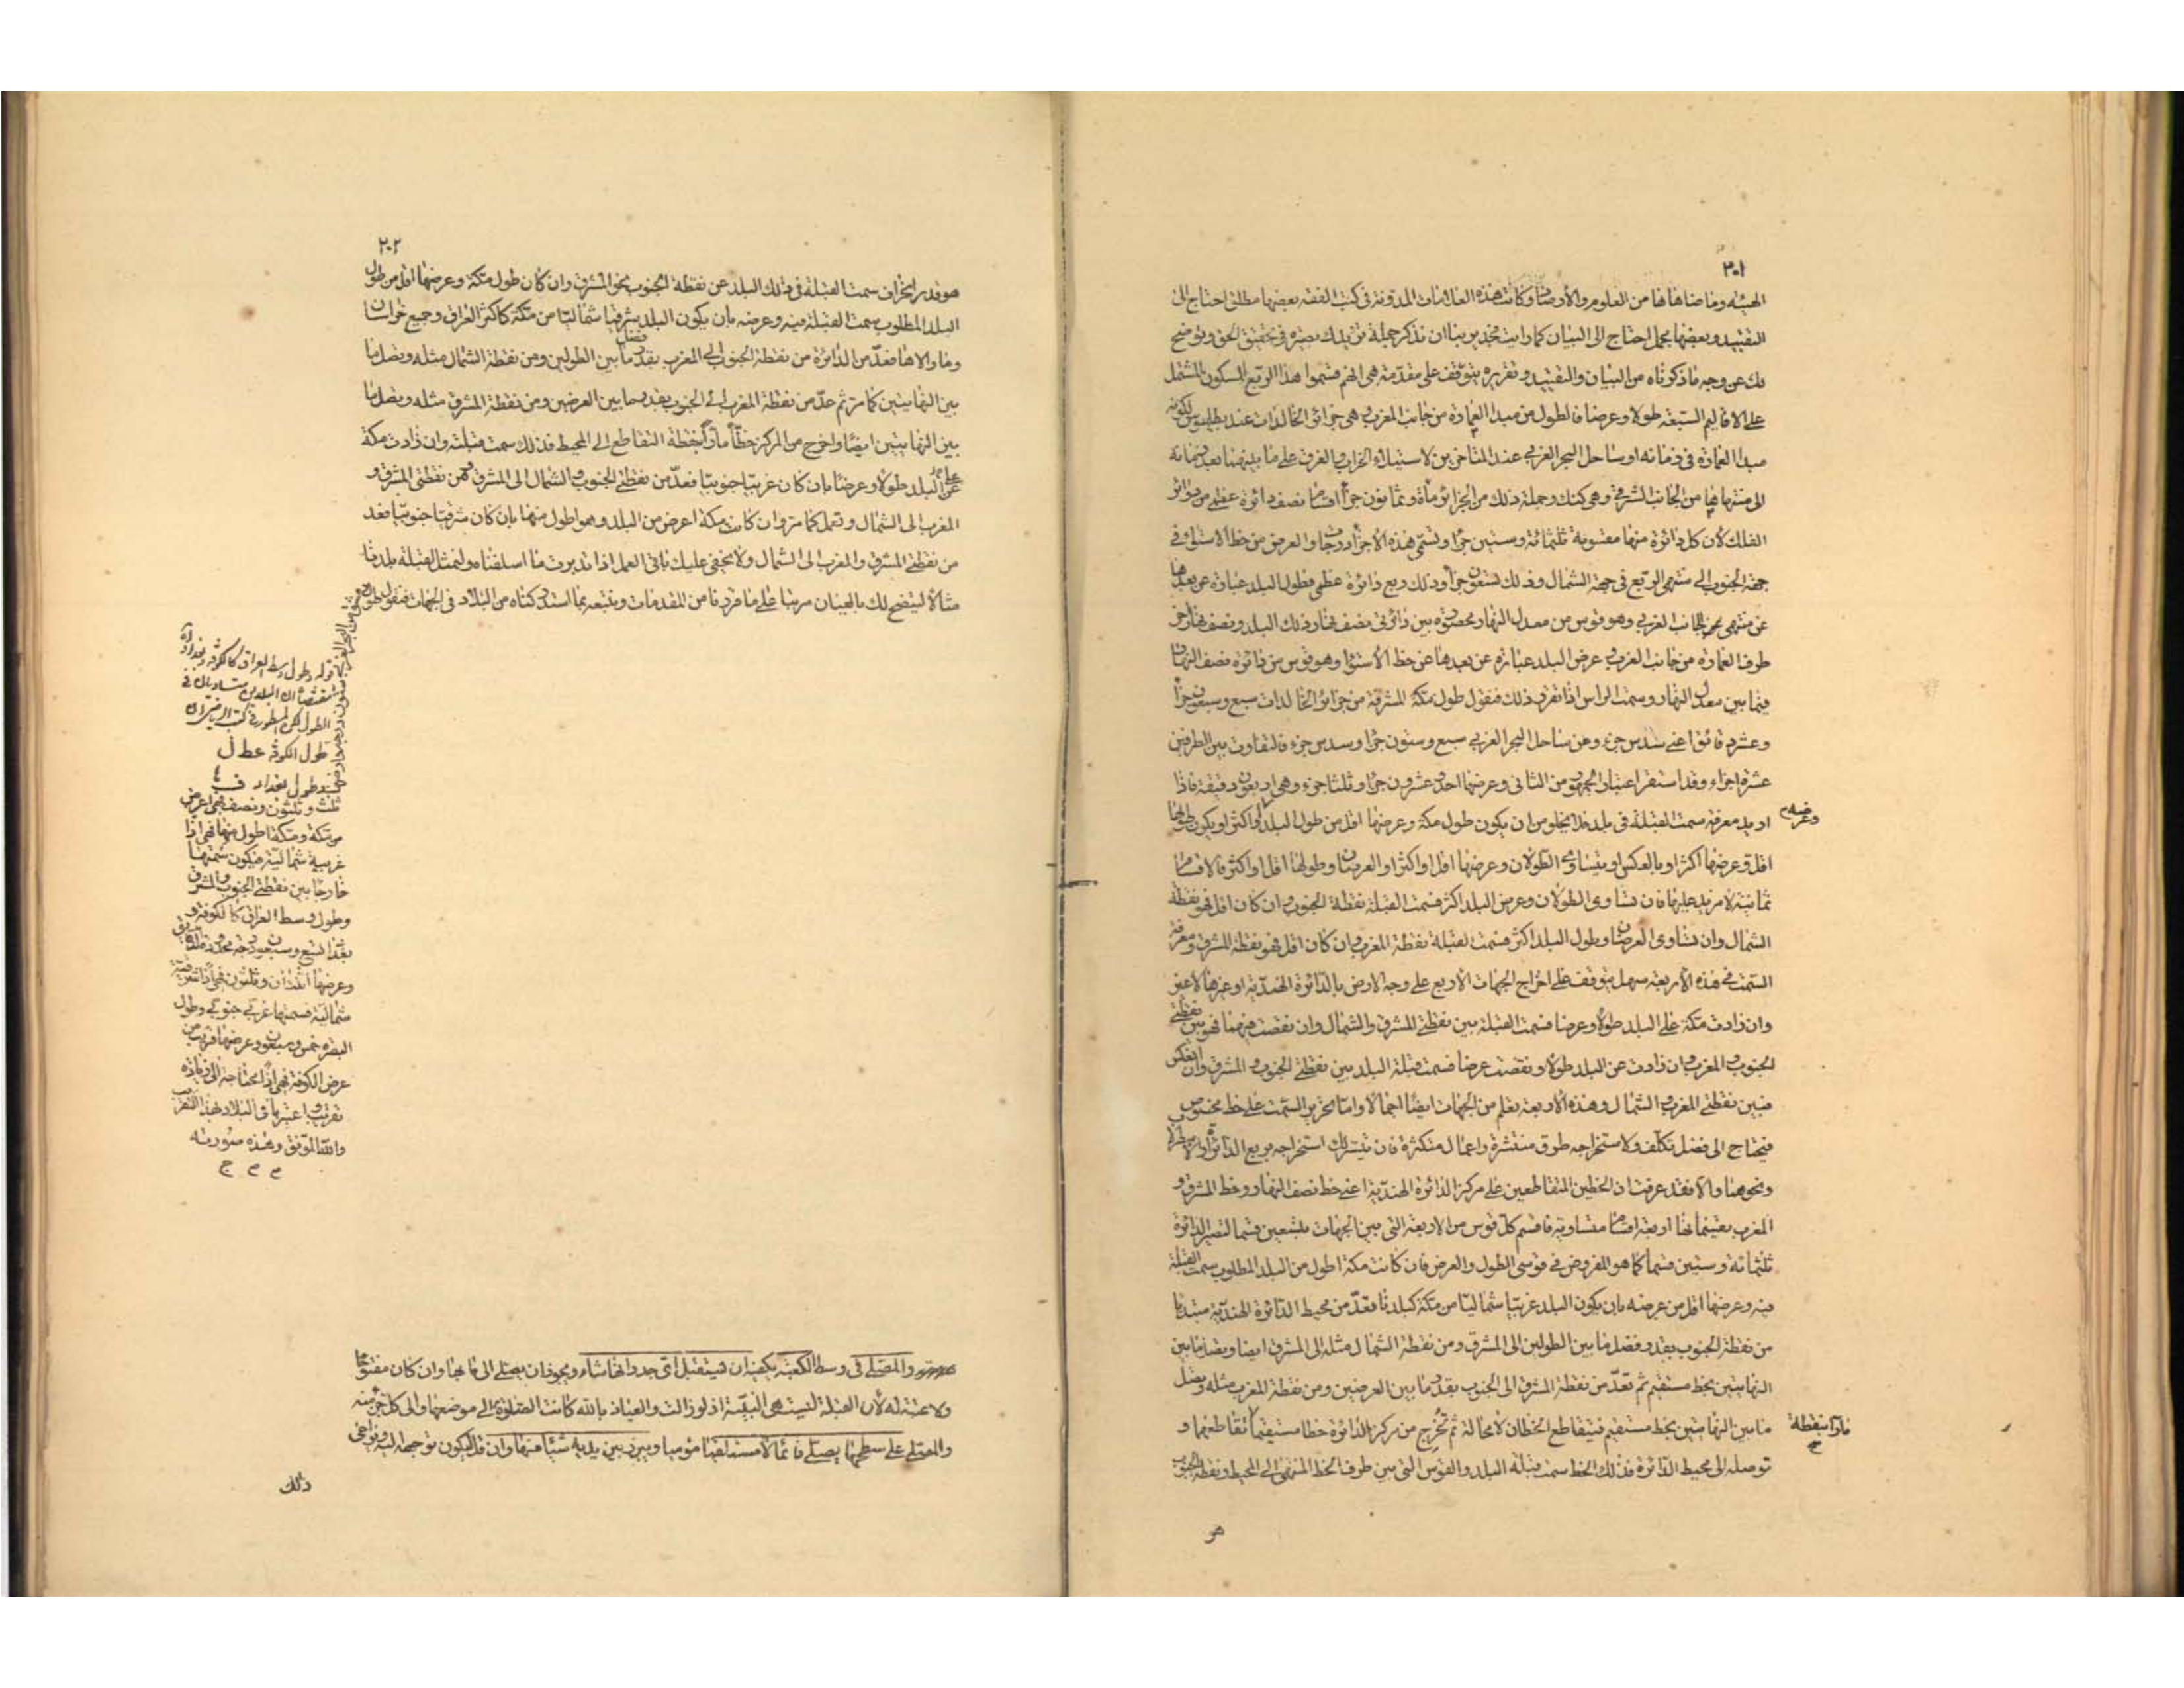 ٣٠١
الهيئة وما ضاهاها من العلوم والأرصاد وكانت هذه العلامات المدونة في كتب الفقه بعضها مطلق احتاج الى
التقييد وبعضها مجمل احتاج الى البيان كما رأيت بنا ان نذكر جملة
لك عن وجه ما ذكرناه من البيان والتقييد وتقريره يتوقف على مقدمة هي انهم قسموا هذا الربع المسكون المشتمل
على الاقاليم السبعة طولا وعرضا فالطول من مبدا العمارة من جانب المغرب وهي جزائر الخالدات عند بطلميوس لكونه
مبدا العمارة في زمانه او ساحل البحر الغربي عند المتأخرين لاستيلاء الخراب والغرق على ما بينهما بعد زمانه
الى منتهاها من الجانب الشرقي وهي كنك وجملة ذلك من الجزائر مأة وثمانون جزأ نصف دائرة عظمى من دوائر
الفلك لأن كل دائرة منها مقسومة ثلثمائة وستين جزأ وتسمى هذه الأجزاء درجا والعرض من خط الاستواء في
جهة الجنوب الى منتهى الربع في جهة الشمال وذلك تسعون جزأ وذلك ربع دائرة عظمى فطول البلد عبارة عن بعدها
عن منتهى الجانب الغربي وهو قوس من معدل النهار محصورة بين دائرتي نصف نهار ذلك البلد ونصف نهار آخر
طرف العمارة من جانب الغرب وعرض البلد عبارة عن بعدها عن خط الأستواء وهو قوس من دائرة نصف النهار
فيما بين معدل النهار وسمت الرأس اذا تقرر ذلك فنقول طول مكة المشرفة من جزائر الخالدات سبع وسبعون جزأ
وعشر دقائق اعني سدس جزء وعن ساحل البحر الغربي سبع وستون جزأ وسدس جزء فالتفاوت بين الطرفين
عشرة اجزاء وقد استقر اعتبار الجمهور من الثاني وعرضها احد وعشرون جزأ وثلثا جزء وهي اربعون دقيقة فاذا
اريد معرفة سمت القبلة في بلد فلا يخلو من ان يكون طول مكة وعرضها اقل من طول البلد او اكثر او يكون طولها
وعرضه
اقل وعرضها اكثر او بالعكس او يتساوى الطولان وعرضها اقل او اكثر او العرضان وطولها اقل او اكثر فالاقسام
ثمانية لا مزيد عليها فان تساوى الطولان وعرض البلد اكثر فسمت القبلة نقطة الجنوب وان كان اقل فهو نقطة
الشمال وان تساوى العرضان وطول البلد اكثر فسمت القبلة نقطة المغرب وان كان اقل فهو نقطة المشرق ومعرفة
السمت في هذه الأربعة سهل يتوقف على اخراج الجهات الأربع على وجه الارض بالدائرة الهندية او غيرها لا غير
وان زادت مكة على البلد طولا وعرضا فسمت القبلة بين نقطتي المشرق والشمال وان نقصت فيهما فهو بين نقطتي
الجنوب والمغرب وان زادت عن البلد طولا ونقصت عرضا فسمت قبلة البلد بين نقطتي الجنوب والمشرق وان انعكس
فبين نقطتي المغرب والشمال وهذه الأربعة تعلم من الجهات ايضا اجمالا واما تحرير السمت على خط مخصوص
فيحتاج الى فضل تكلف ولاستخراجه طرق منتشرة واعمال متكثرة فان تيسر لك استخراجه بربع الدائرة
ونحوهما والا فقد عرفت ان الخطين المتقاطعين على مركز الدائرة الهندية اعني خط نصف النهار وخط المشرق و
المغرب يقسمانها اربعة اقساما متساوية فاقسم كل قوس من الاربعة التي بين الجهات بتسعين قسما لتصير الدائرة
ثلثمائة وستين قسما كما هو المفروض في قوسي الطول والعرض فان كانت مكة اطول من البلد المطلوب سمت القبلة
فيه وعرضها اقل من عرضه بان يكون البلد غربيا شماليا من مكة كبلدنا فعدّ من محيط الدائرة الهندية مبتديا
من نقطة الجنوب بقدر فضل ما بين الطولين الى المشرق ومن نقطة الشمال مثله الى المشرق ايضا وتصل ما بين
النهايتين بخط مستقيم ثم تعدّ من نقطة المشرق الى الجنوب بقدر ما بين العرضين ومن نقطة المغرب مثله وتصل
ما بين النهايتين بخط مستقيم فيتقاطع الخطان لا محالة ثم تخرج من مركز الدائرة خطا مستقيما تقاطعهما و
مارا بنقطة
توصله الى محيط الدائرة فذلك الخط سمت قبلة البلد والقوس التي بين طرف الخط المنتهى الى المحيط ونقطة الجنوب
هو
٣٠٢
هو قدر انحراف سمت القبلة في ذلك البلد عن نقطة الجنوب نحو المشرق وان كان طول مكة وعرضها اقل من طول
البلد المطلوب سمت القبلة فيه وعرضه بان يكون البلد شرقيا شماليا من مكة كأكثر العراق وجميع خراسان
وما والاها فعدّ من الدائرة من نقطة الجنوب الى المغرب بقدر فضل ما بين الطولين ومن نقطة الشمال مثله وتصل ما
بين النهايتين كما مر ثم عدّ من نقطة المغرب الى الجنوب بقدر ما بين العرضين ومن نقطة المشرق مثله وتصل ما
بين النهايتين ايضا واخرج من المركز خطا مارا بنقطة التقاطع الى المحيط فذلك سمت قبلته وان زادت مكة
على البلد طولا وعرضا بان كان غربيا جنوبيا فعدّ من نقطتي الجنوب والشمال الى المشرق ومن نقطتي المشرق و
المغرب الى الشمال وتعمل كما مر وان كانت مكة اعرض من البلد وهو اطول منها بان كان شرقيا جنوبيا فعد
من نقطتي المشرق والمغرب الى الشمال ولا يخفى عليك باقي العمل اذا تدبرت ما اسلفناه ولنمثل لقبلة بلدنا
مثالا ليتضح لك بالعيان مرتبا على ما قررنا من المقدمات ونتبعه بما استدركناه من البلاد في الجهات فنقول طول
دمشق من البحر الغربي ستون درجة وعرضها
ثلث وثلثون ونصف فهي اعرض
من مكة ومكة اطول منها فهي اذا
غربية شمالية فيكون سمتها
خارجا بين نقطتي الجنوب والمشرق
وطول وسط العراق كالكوفة و
بغداد تسع وسبعون درجة
وعرضها اثنتان وثلثون فهي اذا شرقية
شمالية فسمتها غربي جنوبي وطول
البصرة خمس وسبعون وعرضها قريب من
عرض الكوفة فهي اذا محتاجة الى زيادة
تغريب واعتبر باقي البلاد بهذا التقريب
والله الموفق وهذه صورته
قوله وطول وسط العراق كالكوفة وبغداد آه
مقتضاه ان البلدين متساويان في
الطول لكن المسطور في كتب
طول الكوفة عط ل
وطول بغداد ف
والمصلي في وسط الكعبة يكفيه ان يستقبل اي جدرانها شاء ويجوز ان يصلي الى بابها وان كان مفتوحا
ولا عتبة له لأن القبلة ليست هي البنية اذ لو زالت والعياذ بالله كانت الصلوة الى موضعها والى كل جزء منه
والمصلي على سطحها يصلي قائما لا مستلقيا موميا ويبرز بين يديه شيئا منها وان قل ليكون توجهه اليه ويراعى
ذلك